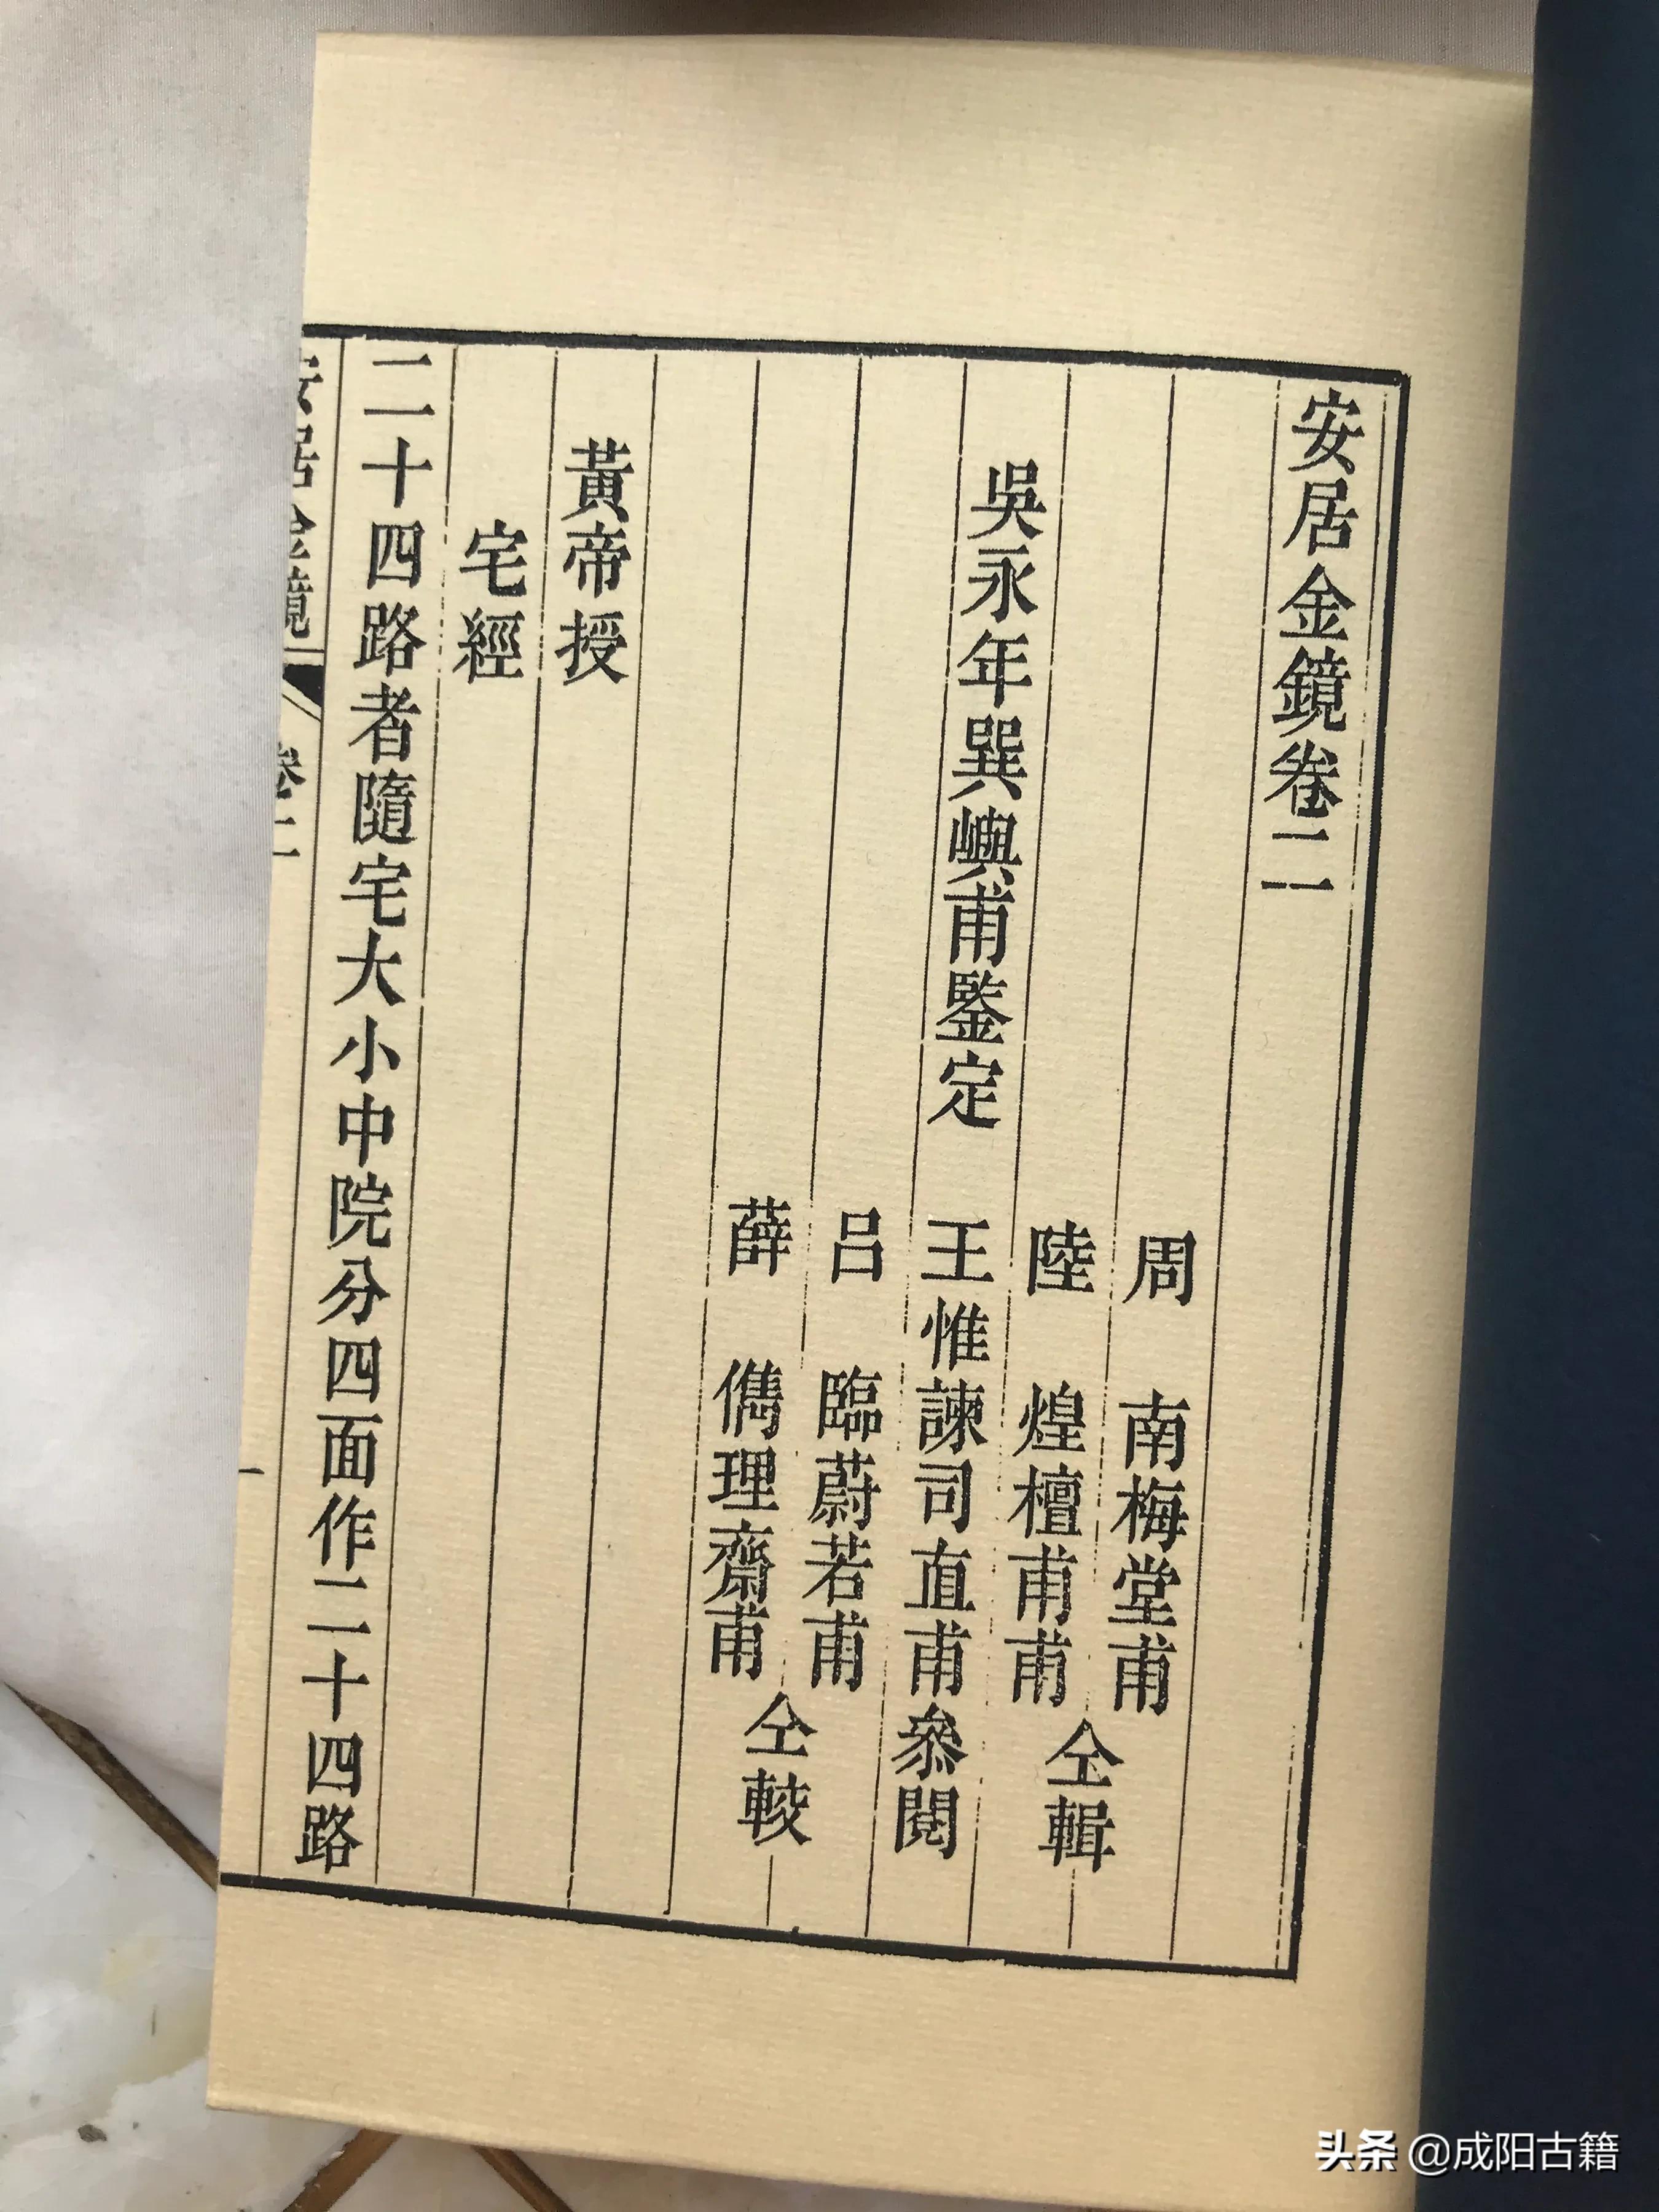 安居金鏡卷二
周　南梅堂甫
陸　煌檀甫甫
仝輯
吳永年巽嶼甫鑒定　王惟諫司直甫叅閱
呂　臨蔚若甫
薛　儁理齋甫
仝較
黃帝授
宅經
二十四路者隨宅大小中院分四面作二十四路
安居金鏡　卷二　一
头条 @成阳古籍